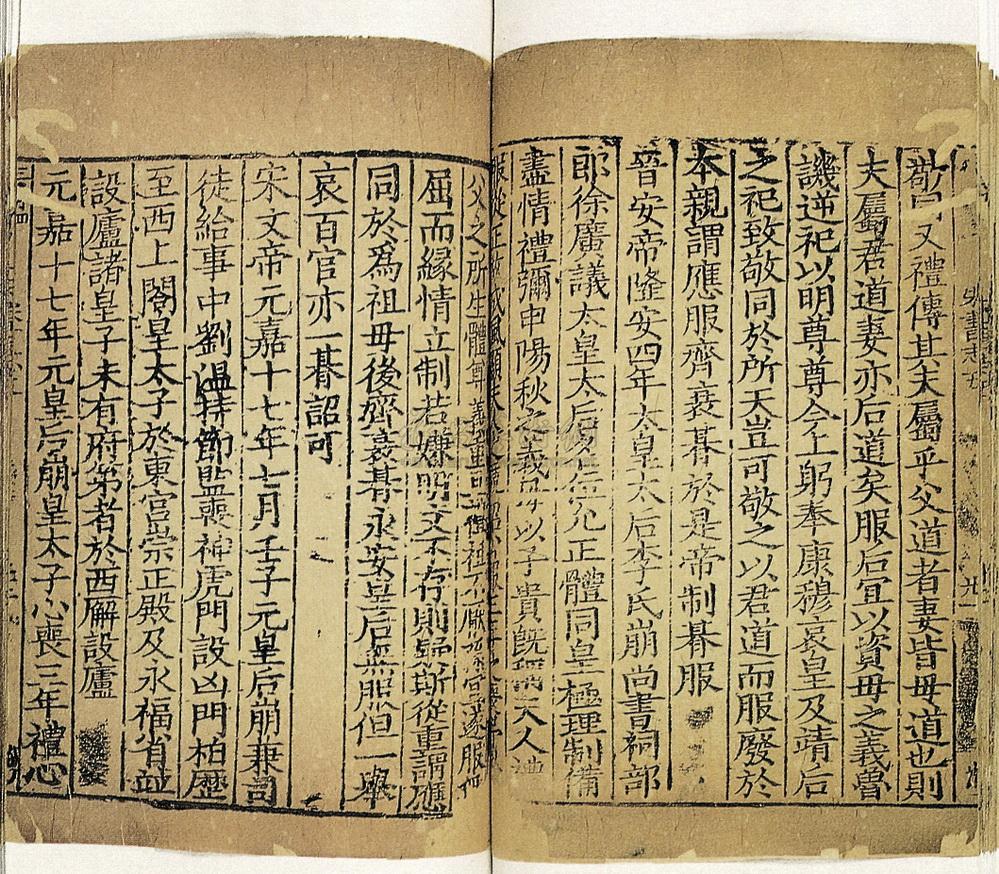 敬同又禮傳其夫屬乎父道者妻皆母道也則
夫屬君道妻亦后道矣服后宜以資母之義魯
譏逆祀以明尊尊今上躬奉康穆哀皇及靖后
之祀致敬同於所天豈可敬之以君道而服廢於
本親謂應服齊衰朞於是帝制朞服
晉安帝隆安四年太皇太后李氏崩尚書祠部
郎徐廣議太皇太后名位允正體同皇極理制備
盡情禮彌申陽秋之義母以子貴旣稱夫人
父之所生體尊義重且禮祖不厭孫宜遂服
屈而緣情立制若嫌明文不存則疑斯從重謂應
同於爲祖母後齊衰朞永安皇后無服但一舉
哀百官亦一朞詔可
宋文帝元嘉十七年七月壬子元皇后崩兼司
徒給事中劉溫持節監喪神虎門設凶門柏歷
至西上閤皇太子於東宮崇正殿及永福省並
設廬諸皇子未有府第者於西廨設廬
元嘉十七年元皇后崩皇太子心喪三年禮心